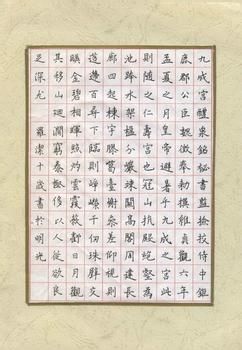 九成宮醴泉銘秘書監撿挍侍中鉅
鹿郡公臣魏徵奉勑撰維貞觀六年
孟夏之月皇帝避暑乎九成之宮此
則隨之仁壽宮也冠山抗殿絕壑為
池跨水架楹分巖竦闕高閣周建長
廊四起棟宇膠葛臺榭參差仰視則
迢遰百尋下臨則崢嶸千仞珠璧交
暎金碧相暉照灼雲霞蔽虧日月觀
其移山迴澗窮泰極侈以人從欲良
足深尤 羅潔十歲書於明光